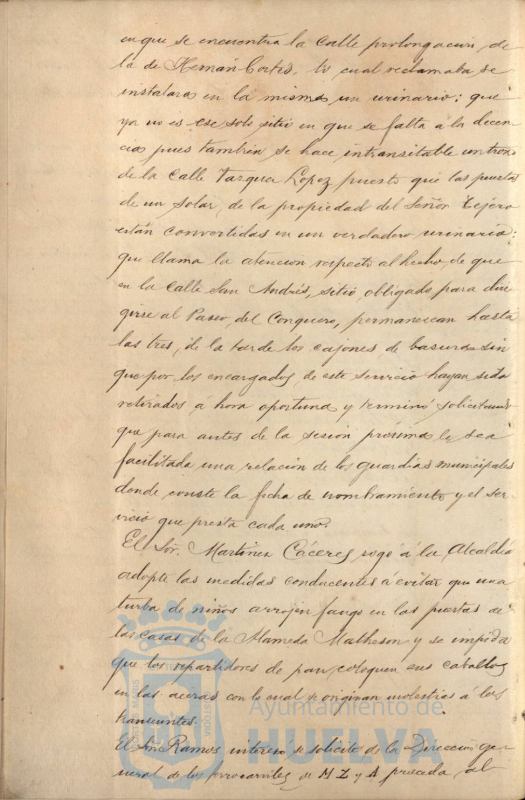 en que se encuentra la Calle prolongacion, de
la de Hernán Cortés, lo cual reclamaba se
instalara en la misma un urinario; que
ya no es ese solo sitio en que se falta á la decen-
cia, pues tambien se hace intransitable un trozo
de la Calle Vazquez Lopez puesto que las puertas
de un solar, de la propiedad del Señor Tejero
están convertidas en un verdadero urinario;
que llama la atencion respecto al hecho, de que
en la Calle San Andrés, sitio, obligado para diri
girse al Paseo, del Conquero, permanezcan hasta
las tres, de la tarde los cajones de basuras sin
que por los encargados de este servicio hayan sido
retirados á hora oportuna y terminó solicitando
que para antes de la sesion próxima le sea
facilitada una relacion de los guardias municipales
donde conste la fecha de nombramiento y el ser-
vicio que presta cada uno.
El Sor. Martinez Cáceres rogó á la Alcaldia
adopte las medidas conducentes á evitar que una
turba de niños arrojen fango en las puertas de
las casas de la Alameda Matheson y se impida
que los repartidores de pan, coloquen sus caballos
en las aceras con lo cual se originan molestias á los
transeuntes.
El Sor. Ramos interesó se solicite de la Direccion ge-
neral de los ferrocarriles de M Z y A proceda al
Ayuntamiento de
HUELVA